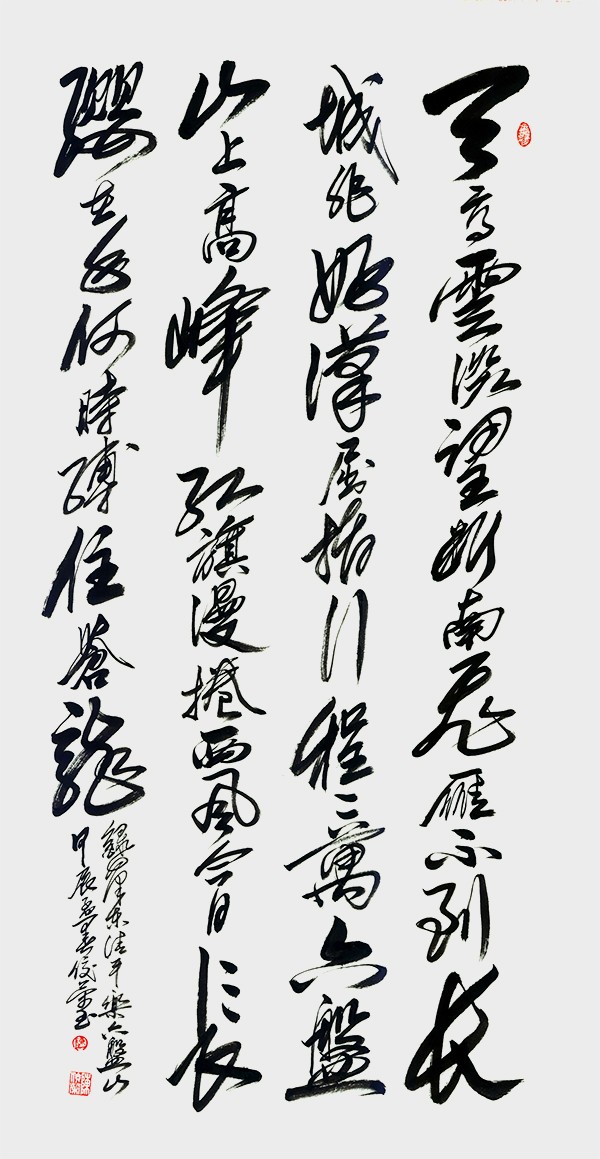 天高雲淡望斷南飛雁不到長
城非好漢屈指行程二萬六盤
山上高峰紅旗漫捲西風今日長
纓在手何時縛住蒼龍
錄毛澤东清平樂六盤山
甲辰